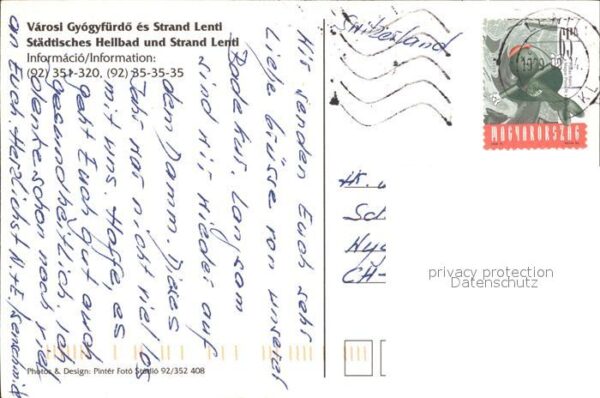 Városi Gyógyfürdő és Strand Lenti
Städtisches Heilbad und Strand Lenti
Információ/Information:
(92) 351-320, (92) 35-35-35
Switzerland
MAGYARORSZÁG
Wir senden Euch sehr
Liebe Grüsse von unserer
Badekur. Langsam
sind wir wieder auf
dem Damm. Dieses
Jahr war nicht viel los
mit uns. Hoffe, es
geht Euch gut auch
gesundheitlich. Ich
denke schon noch viel
an Euch Herzlichst N.+E.
CH-
privacy protection
Datenschutz
Photos & Design: Pintér Fotó Stúdió 92/352 408